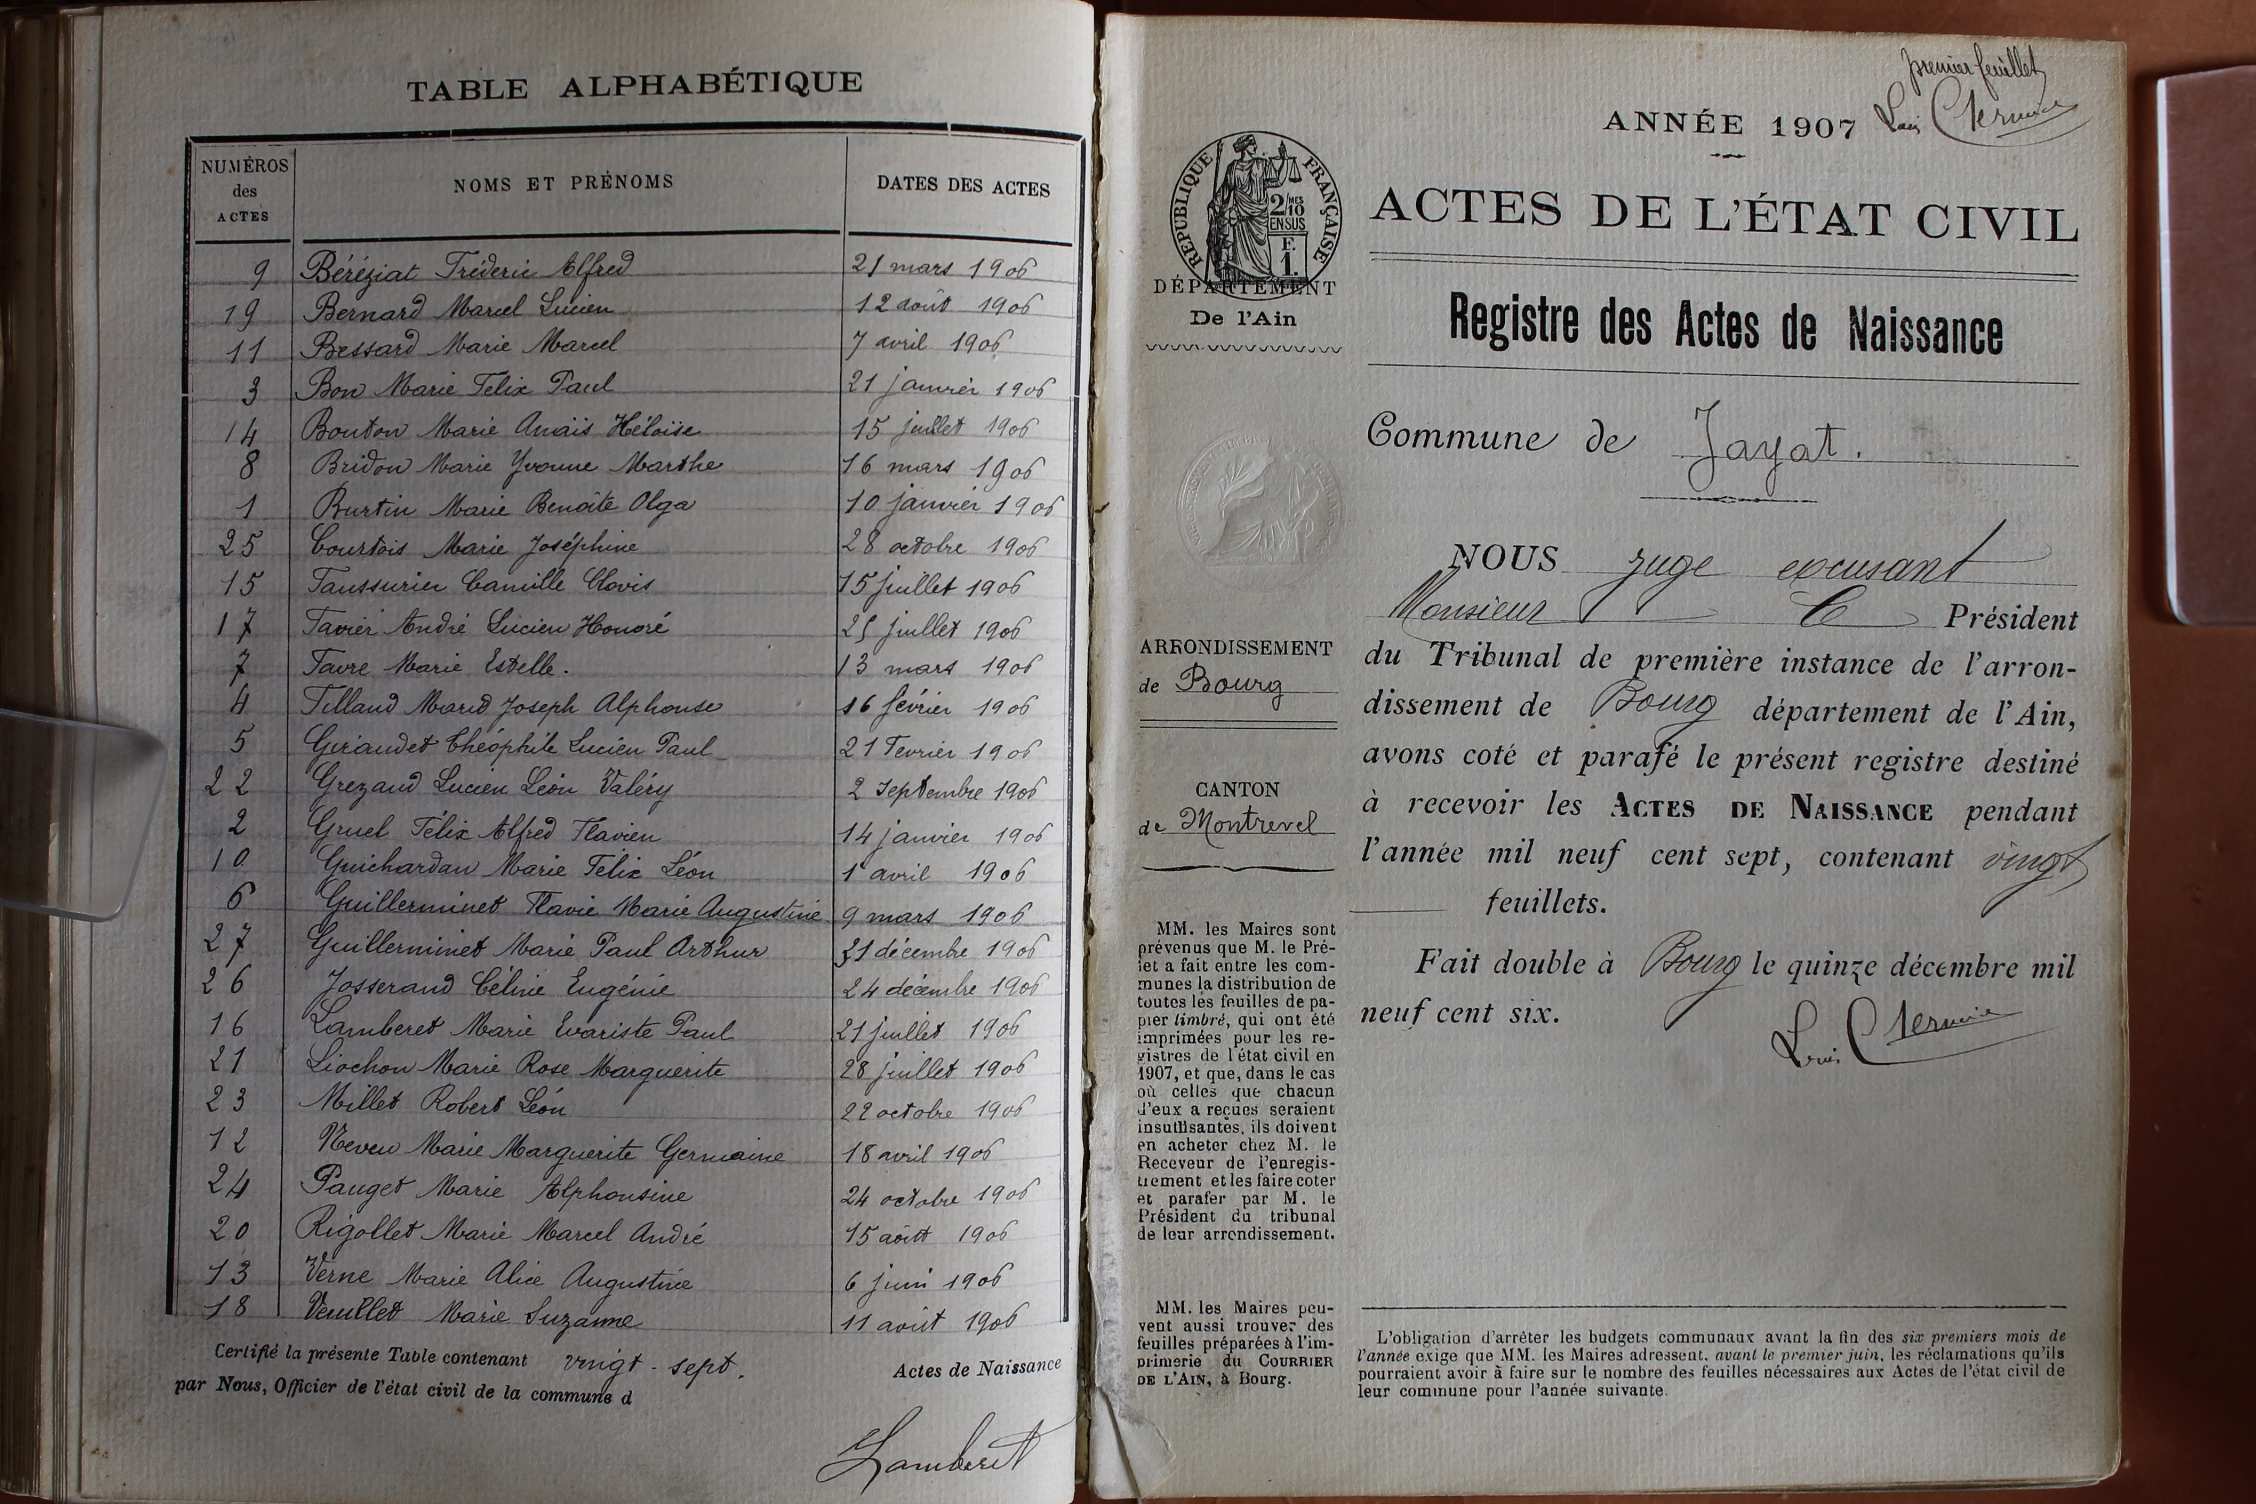 TABLE ALPHABÉTIQUE
NUMÉROS des ACTES NOMS ET PRÉNOMS DATES DES ACTES
9 Béréziat Fréderic Alfred 21 mars 1906
19 Bernard Marcel Lucien 12 août 1906
11 Bessard Marie Marcel 7 avril 1906
3 Bon Marie Félix Paul 21 janvier 1906
14 Bouton Marie Anaïs Héloïse 15 juillet 1906
8 Bridon Marie Yvonne Marthe 16 mars 1906
1 Burtin Marie Benoîte Olga 10 janvier 1906
25 Courtois Marie Joséphine 28 octobre 1906
15 Faussurier Camille Clovis 15 juillet 1906
17 Favier André Lucien Honoré 25 juillet 1906
7 Favre Marie Estelle. 13 mars 1906
4 Filland Marie Joseph Alphonse 16 février 1906
5 Geraudet Théophile Lucien Paul 21 Fevrier 1906
22 Grezaud Lucien Léon Valéry 2 Septembre 1906
2 Gruel Félix Alfred Flavien 14 janvier 1906
10 Guichardan Marie Félix Léon 1er avril 1906
6 Guillerminet Flavie Marie Augustine 9 mars 1906
27 Guillerminet Marie Paul Arthur 31 décembre 1906
26 Josserand Céline Eugénie 24 décembre 1906
16 Lamberet Marie Evariste Paul 21 juillet 1906
21 Liochon Marie Rose Marguerite 28 juillet 1906
23 Millet Robert Léon 22 octobre 1906
12 Neveu Marie Marguerite Germaine 18 avril 1906
24 Pauget Marie Alphonsine 24 octobre 1906
20 Rigollet Marie Marcel André 15 août 1906
13 Verne Marie Alice Augustine 6 juin 1906
18 Veuillet Marie Suzanne 11 août 1906
Certifié la présente Table contenant vingt-sept. Actes de Naissance
par Nous, Officier de l'état civil de la commune d
Lamberet
premier feuillet
ANNÉE 1907
Louis
RÉPUBLIQUE FRANÇAISE
2/10 MES
EN SUS
F.
1.
DÉPARTEMENT
De l'Ain
ARRONDISSEMENT
de Bourg
CANTON
de Montrevel
MM. les Maires sont
prévenus que M. le Pré-
fet a fait entre les com-
munes la distribution de
toutes les feuilles de pa-
pier timbré, qui ont été
imprimées pour les re-
gistres de l'état civil en
1907, et que, dans le cas
où celles que chacun
d'eux a reçues seraient
insuffisantes, ils doivent
en acheter chez M. le
Receveur de l'enregis-
trement et les faire coter
et parafer par M. le
Président du tribunal
de leur arrondissement.
MM. les Maires peu-
vent aussi trouver des
feuilles préparées à l'im-
primerie du COURRIER
DE L'AIN, à Bourg.
ACTES DE L'ÉTAT CIVIL
Registre des Actes de Naissance
Commune de Jayat.
NOUS juge excusant
Monsieur le Président
du Tribunal de première instance de l'arron-
dissement de Bourg département de l'Ain,
avons coté et parafé le présent registre destiné
à recevoir les ACTES DE NAISSANCE pendant
l'année mil neuf cent sept, contenant vingt
feuillets.
Fait double à Bourg le quinze décembre mil
neuf cent six.
Louis
L'obligation d'arrêter les budgets communaux avant la fin des six premiers mois de
l'année exige que MM. les Maires adressent, avant le premier juin, les réclamations qu'ils
pourraient avoir à faire sur le nombre des feuilles nécessaires aux Actes de l'état civil de
leur commune pour l'année suivante.